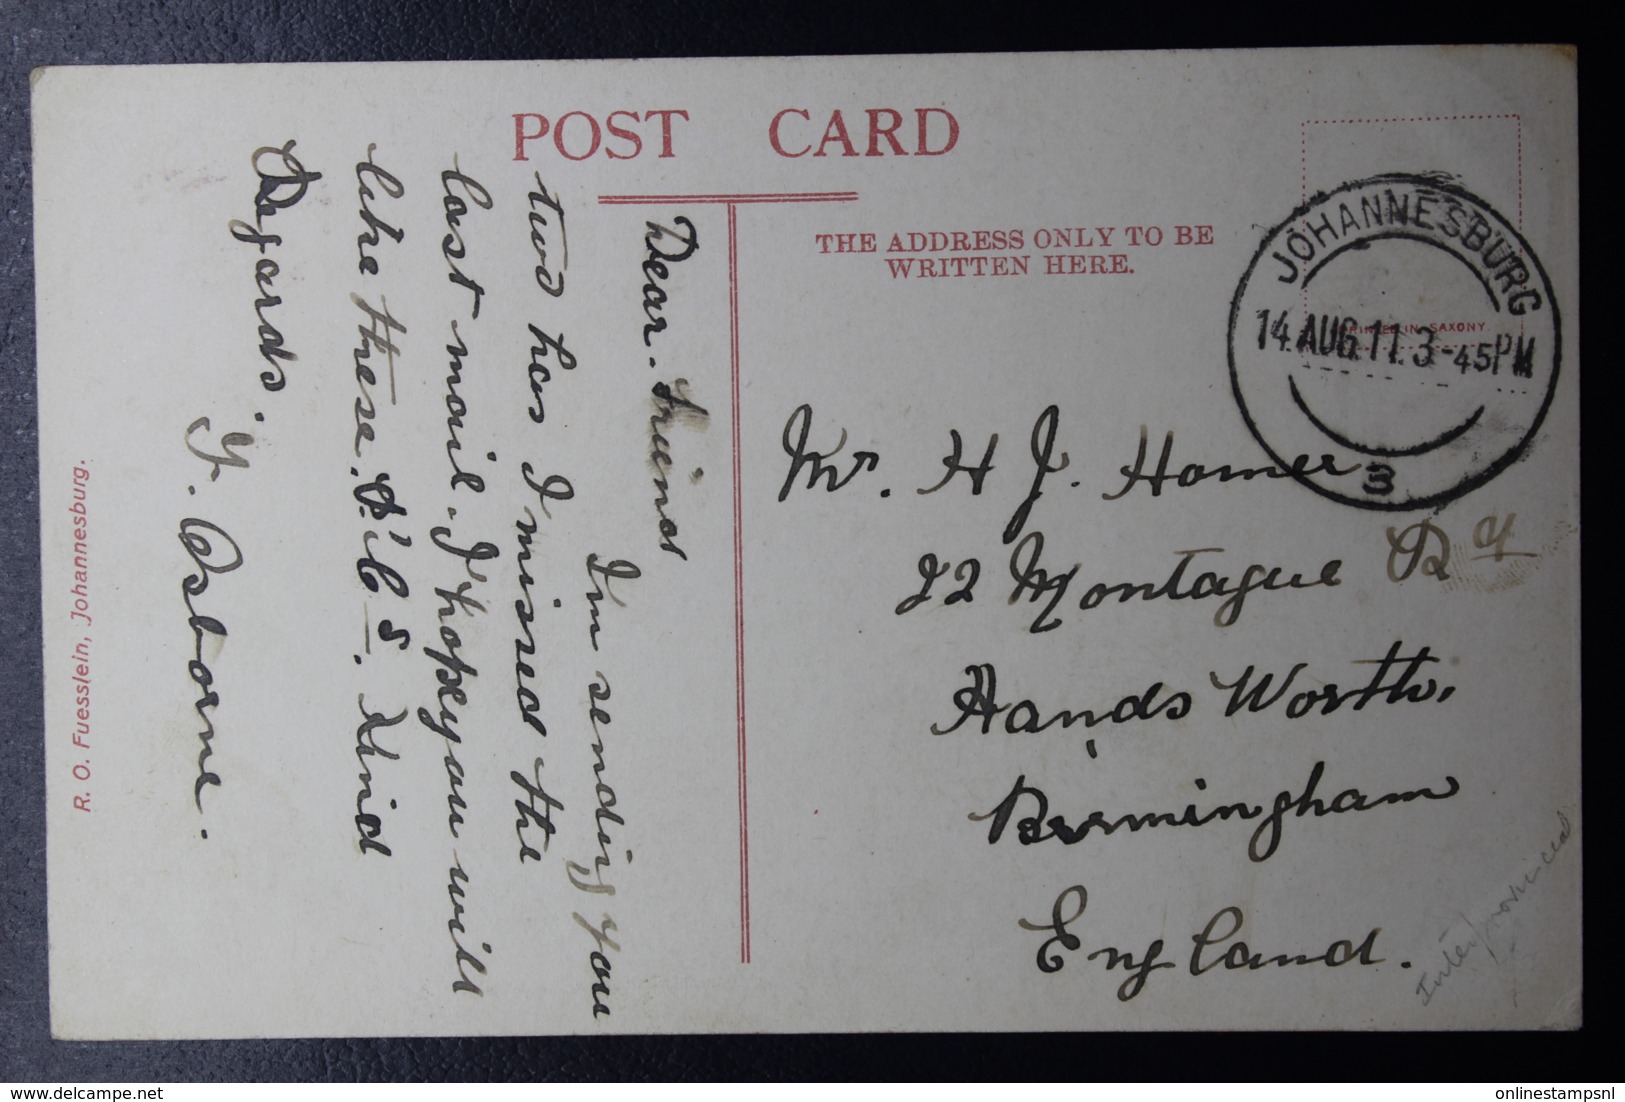 POST CARD
THE ADDRESS ONLY TO BE
WRITTEN HERE.
PRINTED IN SAXONY.
JOHANNESBURG
14.AUG.11.3-45PM
3
Dear. Friend
Im sending you
two has I missed the
last mail. I hope you will
like these. P.'C.s. Kind
Regards.
Y. Osborne.
Mr. H J. Homer
22 Montague Rd
Hands Worth,
Birmingham
England.
Interprovincial
R. O. Fuesslein, Johannesburg.
onlinestampsnl